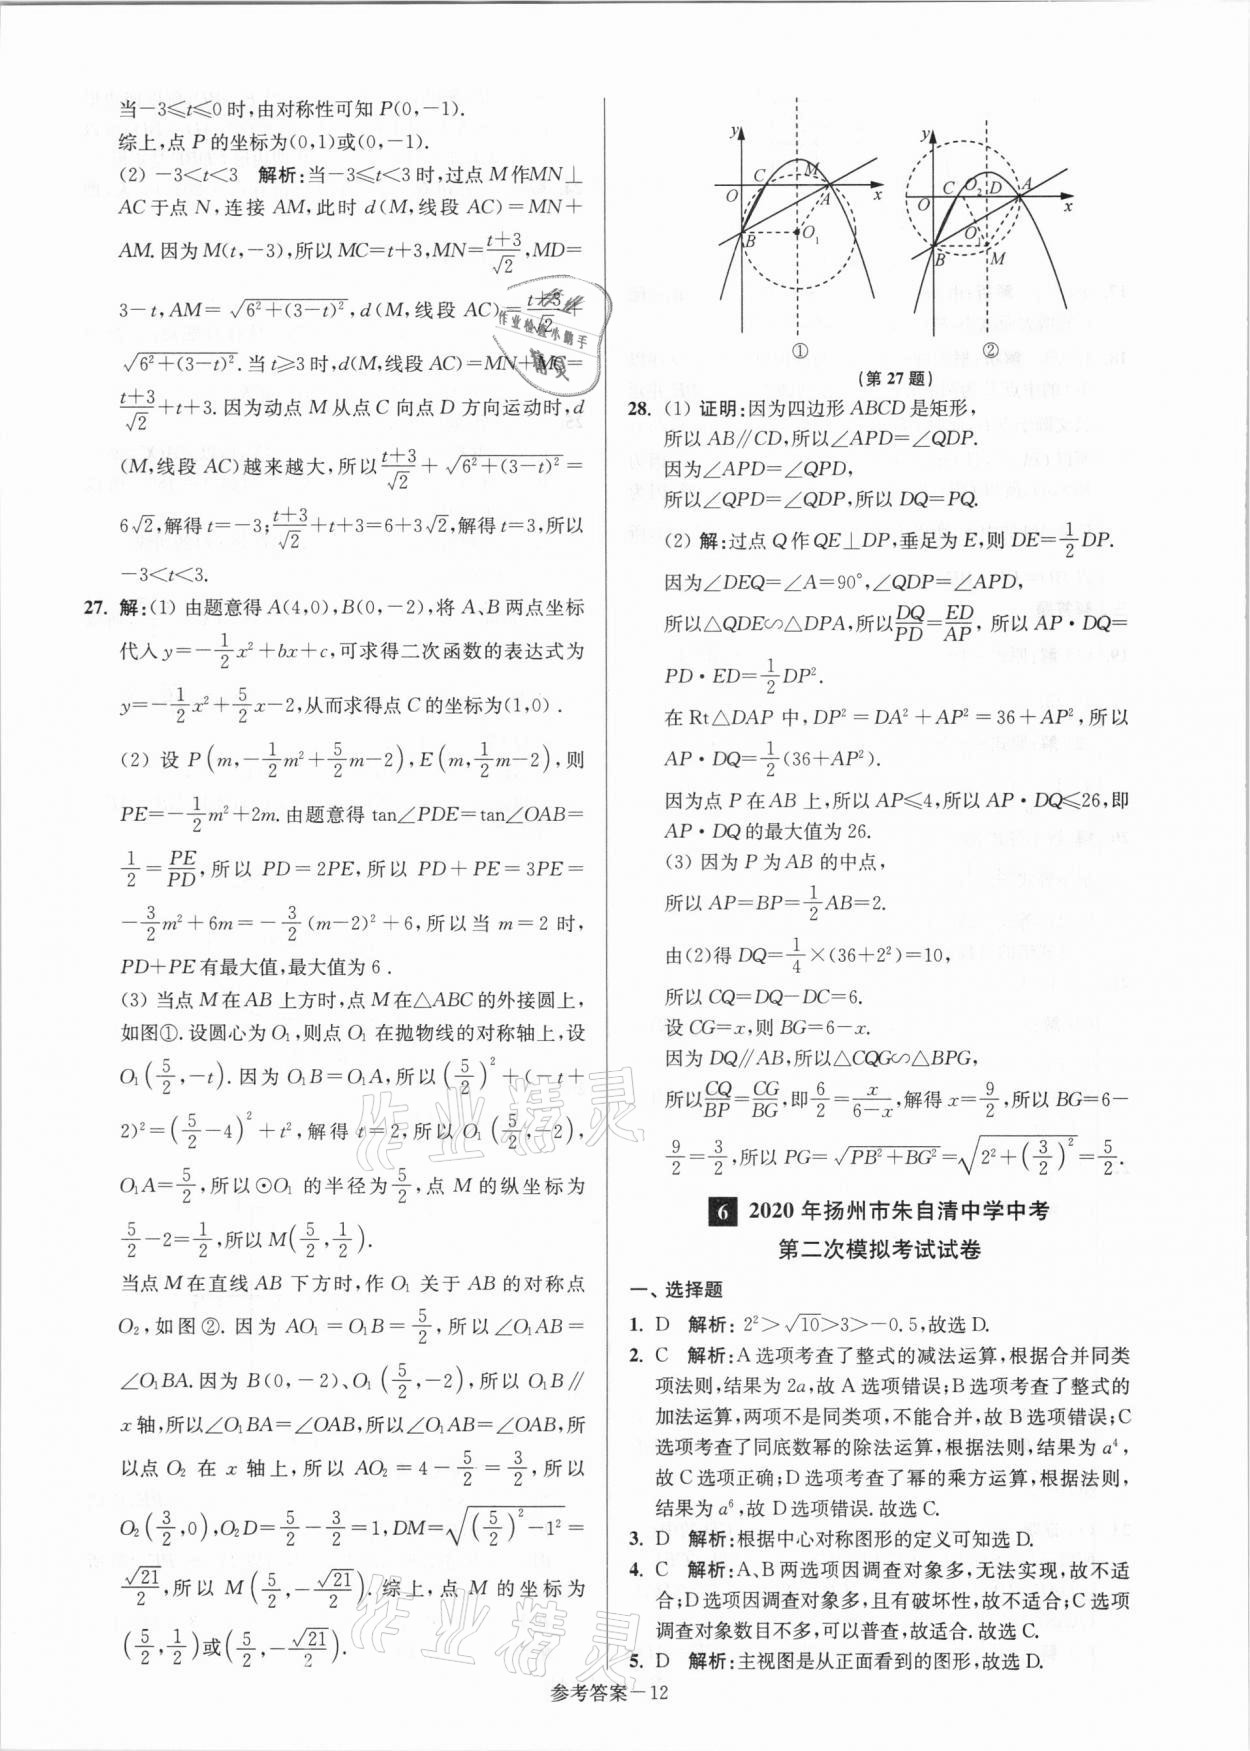 当-3≤t≤0时,由对称性可知P(0,-1).
综上,点P的坐标为(0,1)或(0,-1).
(2) -3<t<3 解析:当-3≤t<3时,过点M作MN⊥
AC于点N,连接AM,此时d(M,线段AC)=MN+
AM.因为M(t,-3),所以MC=t+3,MN=\frac{t+3}{\sqrt{2}},MD=
3-t,AM=\sqrt{6^2+(3-t)^2},d(M,线段AC)=\frac{t+3}{\sqrt{2}}+
\sqrt{6^2+(3-t)^2}.当t≥3时,d(M,线段AC)=MN+MC=
\frac{t+3}{\sqrt{2}}+t+3.因为动点M从点C向点D方向运动时,d
(M,线段AC)越来越大,所以\frac{t+3}{\sqrt{2}}+\sqrt{6^2+(3-t)^2}=
6\sqrt{2},解得t=-3;\frac{t+3}{\sqrt{2}}+t+3=6+3\sqrt{2},解得t=3,所以
-3<t<3.
27. 解:(1) 由题意得A(4,0),B(0,-2),将A、B两点坐标
代入y=-\frac{1}{2}x^2+bx+c,可求得二次函数的表达式为
y=-\frac{1}{2}x^2+\frac{5}{2}x-2,从而求得点C的坐标为(1,0).
(2) 设P(m,-\frac{1}{2}m^2+\frac{5}{2}m-2),E(m,\frac{1}{2}m-2),则
PE=-\frac{1}{2}m^2+2m.由题意得tan∠PDE=tan∠OAB=
\frac{1}{2}=\frac{PE}{PD},所以PD=2PE,所以PD+PE=3PE=
-\frac{3}{2}m^2+6m=-\frac{3}{2}(m-2)^2+6,所以当m=2时,
PD+PE有最大值,最大值为6.
(3) 当点M在AB上方时,点M在△ABC的外接圆上,
如图①.设圆心为O₁,则点O₁在抛物线的对称轴上,设
O₁(\frac{5}{2},-t).因为O₁B=O₁A,所以(\frac{5}{2})^2+(-t+
2)^2=(\frac{5}{2}-4)^2+t^2,解得t=2,所以O₁(\frac{5}{2},-2),
O₁A=\frac{5}{2},所以⊙O₁的半径为\frac{5}{2},点M的纵坐标为
\frac{5}{2}-2=\frac{1}{2},所以M(\frac{5}{2},\frac{1}{2}).
当点M在直线AB下方时,作O₁关于AB的对称点
O₂,如图②.因为AO₁=O₁B=\frac{5}{2},所以∠O₁AB=
∠O₁BA.因为B(0,-2)、O₁(\frac{5}{2},-2),所以O₁B∥
x轴,所以∠O₁BA=∠OAB,所以∠O₁AB=∠OAB,所
以点O₂在x轴上,所以AO₂=4-\frac{5}{2}=\frac{3}{2},所以
O₂(\frac{3}{2},0),O₂D=\frac{5}{2}-\frac{3}{2}=1,DM=\sqrt{(\frac{5}{2})^2-1^2}=
\frac{\sqrt{21}}{2},所以M(\frac{5}{2},-\frac{\sqrt{21}}{2}).综上,点M的坐标为
(\frac{5}{2},\frac{1}{2})或(\frac{5}{2},-\frac{\sqrt{21}}{2}).
y C M O A x B O₁
①
y C O₂ D A O x O₁ B M
②
(第27题)
28. (1) 证明:因为四边形ABCD是矩形,
所以AB∥CD,所以∠APD=∠QDP.
因为∠APD=∠QPD,
所以∠QPD=∠QDP,所以DQ=PQ.
(2) 解:过点Q作QE⊥DP,垂足为E,则DE=\frac{1}{2}DP.
因为∠DEQ=∠A=90°,∠QDP=∠APD,
所以△QDE∽△DPA,所以\frac{DQ}{PD}=\frac{ED}{AP},所以AP·DQ=
PD·ED=\frac{1}{2}DP^2.
在Rt△DAP中,DP^2=DA^2+AP^2=36+AP^2,所以
AP·DQ=\frac{1}{2}(36+AP^2).
因为点P在AB上,所以AP≤4,所以AP·DQ≤26,即
AP·DQ的最大值为26.
(3) 因为P为AB的中点,
所以AP=BP=\frac{1}{2}AB=2.
由(2)得DQ=\frac{1}{4}×(36+2^2)=10,
所以CQ=DQ-DC=6.
设CG=x,则BG=6-x.
因为DQ∥AB,所以△CQG∽△BPG,
所以\frac{CQ}{BP}=\frac{CG}{BG},即\frac{6}{2}=\frac{x}{6-x},解得x=\frac{9}{2},所以BG=6-
\frac{9}{2}=\frac{3}{2},所以PG=\sqrt{PB^2+BG^2}=\sqrt{2^2+(\frac{3}{2})^2}=\frac{5}{2}.
6 2020年扬州市朱自清中学中考
第二次模拟考试试卷
一、选择题
1. D 解析:2^2>\sqrt{10}>3>-0.5,故选D.
2. C 解析:A选项考查了整式的减法运算,根据合并同类
项法则,结果为2a,故A选项错误;B选项考查了整式的
加法运算,两项不是同类项,不能合并,故B选项错误;C
选项考查了同底数幂的除法运算,根据法则,结果为a^4,
故C选项正确;D选项考查了幂的乘方运算,根据法则,
结果为a^6,故D选项错误.故选C.
3. D 解析:根据中心对称图形的定义可知选D.
4. C 解析:A、B两选项因调查对象多,无法实现,故不适
合;D选项因调查对象多,且有破坏性,故不适合;C选项
调查对象数目不多,可以普查,故适合.故选C.
5. D 解析:主视图是从正面看到的图形,故选D.
参考答案-12
作业精灵
作业精灵
作业检查小助手